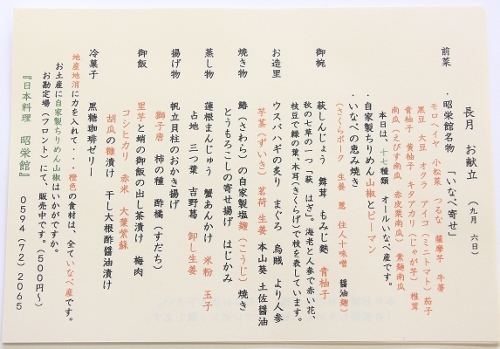 長月 お献立 (九月 六日)
前菜
・昭栄館名物 「いなべ寄せ」
モロヘイヤ 小松菜 つるな 薩摩芋 牛蒡
黒豆 大豆 オクラ アイコ(ミニトマト) 茄子
黄柚子 黄柚子 キタアカリ(じゃが芋) 椎茸
南瓜(えびす南瓜 赤皮栗南瓜) 素麺南瓜
本日は、十七種類 オールいなべ産です。
・自家製ちりめん山椒とピーマン
・いなべの恵み焼き 醤油麹)
(さくらポーク 生姜 葱 住人十味噌
御椀
萩しんじょう 舞茸 もみじ麩 青柚子
秋の七草の一つ「萩 はぎ」。海老と人参で赤い花、
枝豆で緑の葉、木耳(きくらげ)で枝を表しています。
お造里
ウスバハギの炙り まぐろ 烏賊 より人参
芋茎(ずいき) 茗荷 生姜 本山葵 土佐醤油
焼き物
鰆(さわら)の自家製塩麹(こうじ)焼き
とうもろこしの寄せ揚げ はじかみ
蒸し物
蓮根まんじゅう 蟹あんかけ 米粉 玉子
占地 三つ葉 吉野葛 卸し生姜
揚げ物
帆立貝柱のおかき揚げ
獅子唐 柿の種 酢橘(すだち)
御飯
里芋と蛸の御飯の出し茶漬け 梅肉
コシヒカリ 赤米 大葉紫蘇
胡瓜の糠漬け 干し大根酢醤油漬け
冷菓子
黒糖珈琲ゼリー
地産地消に力を入れて・・・橙色の食材は、全ていなべ産です。
お土産に自家製ちりめん山椒はいかがですか。
お勘定場(フロント)にて、販売中です。(500円〜)
『日本料理 昭栄館』 0594(72)2065